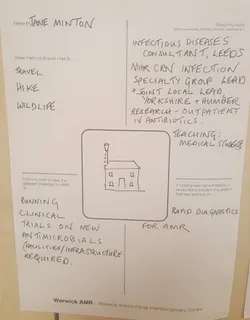 JANE MINTON
When I am not at work I like to...
TRAVEL
HIKE
WILDLIFE
INFECTIOUS DISEASES
CONSULTANT, LEEDS
NIHR CRN INFECTION
SPECIALTY GROUP LEAD
+ JOINT LOCAL LEAD,
YORKSHIRE + HUMBER
RESEARCH - OUTPATIENT
IV ANTIBIOTICS.
TEACHING:
MEDICAL STUDENTS
RUNNING
CLINICAL
TRIALS ON NEW
ANTIMICROBIALS
(FACILITIES/INFRASTRUCTURE
REQUIRED.
RAPID DIAGNOSTICS
FOR AMR
Warwick AMR - Warwick Antimicrobial Interdisciplinary Centre